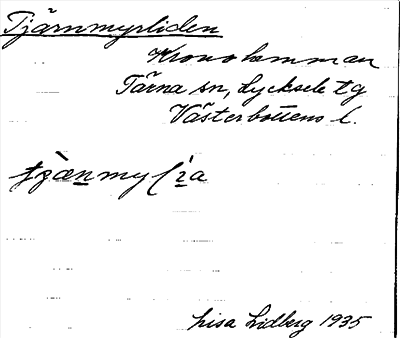 Tjärnmyrliden
Kronohamman
Tärna sn, Lycksele tg
Västerbottens l.
Lisa Lidberg 1935